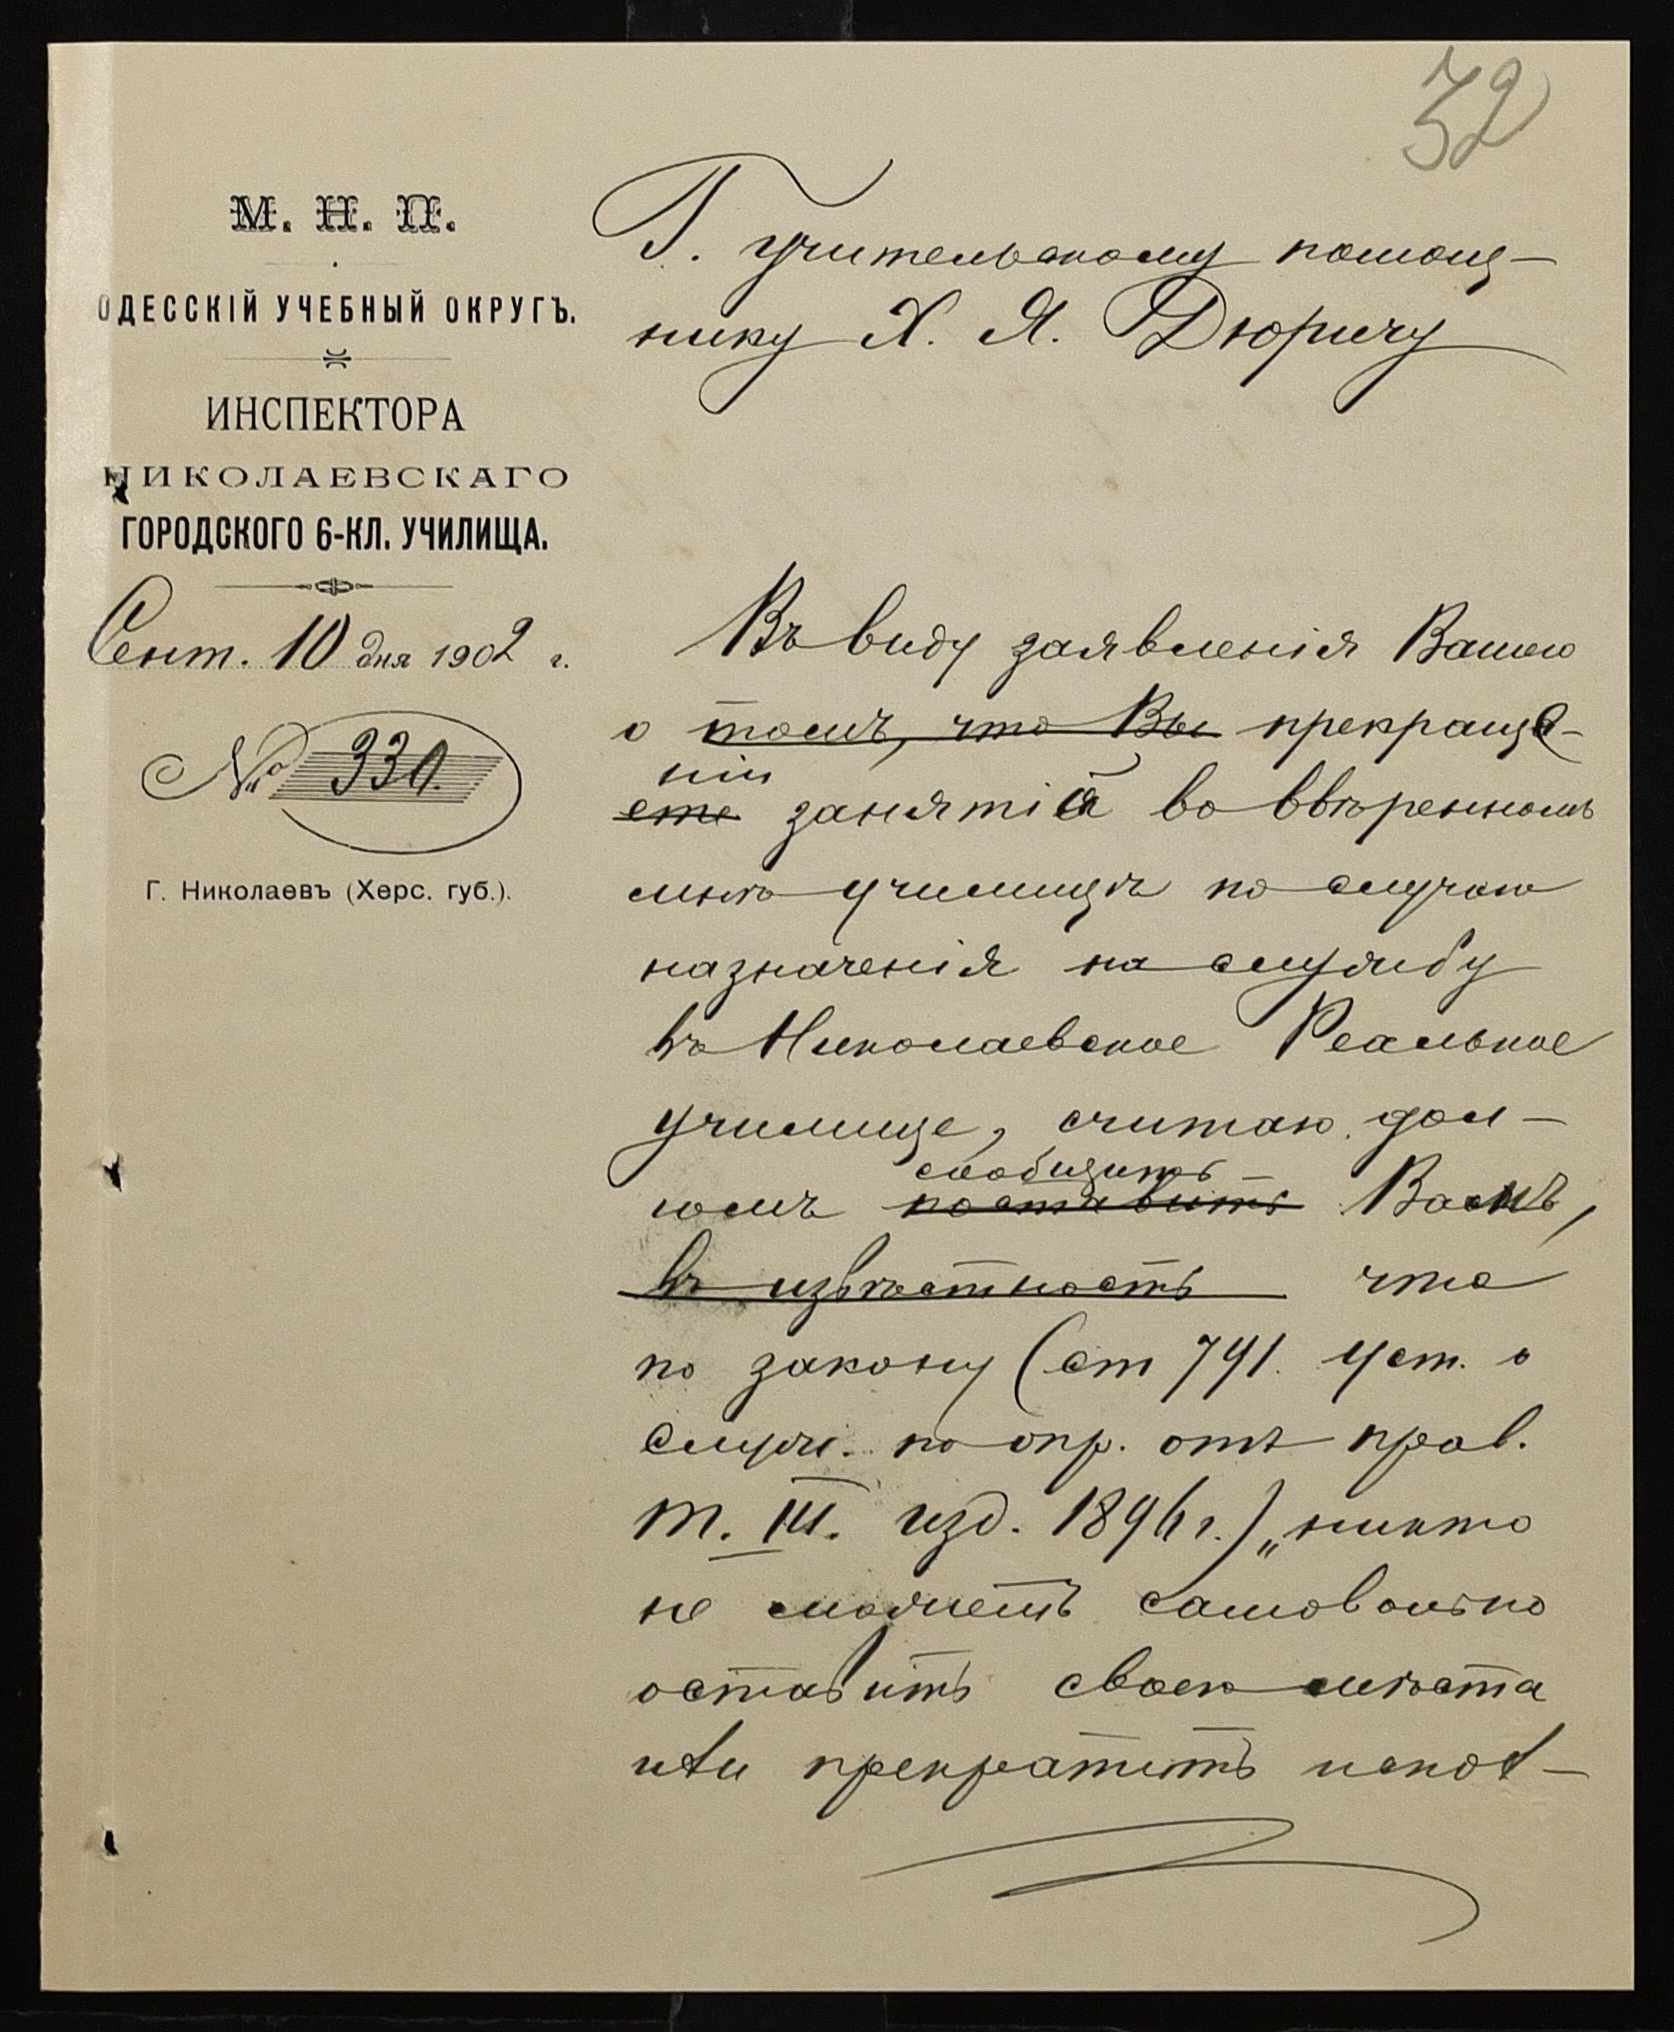 32
М. Н. П.
ОДЕССКІЙ УЧЕБНЫЙ ОКРУГЪ.
ИНСПЕКТОРА
НИКОЛАЕВСКАГО
ГОРОДСКОГО 6-КЛ. УЧИЛИЩА.
Сент. 10 дня 1902 г.
№ 330.
Г. Николаевъ (Херс. губ.).
Г. Учительскому помощ-
нику Х. Я. Дюричу
Въ виду заявленія Вашего
о томъ, что Вы прекраща-
ніи
ете занятій во ввѣренномъ
мнѣ училищѣ по случаю
назначенія на службу
въ Николаевское Реальное
училище, считаю дол-
сообщить
гомъ поставить Вамъ,
въ извѣстность что
по закону (ст 741. Уст. о
служ. по опр. отъ прав.
т. III. изд. 1896 г.) „никто
не можетъ самовольно
оставить своего мѣста
или прекратить испол-